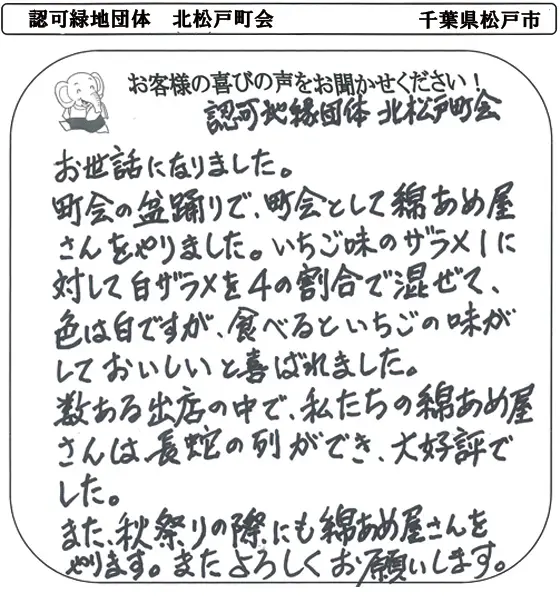 認可緑地団体　北松戸町会　千葉県松戸市
お客様の喜びの声をお聞かせください！
認可地縁団体 北松戸町会
お世話になりました。
町会の盆踊りで、町会として綿あめ屋
さんをやりました。いちご味のザラメ1に
対して白ザラメを4の割合で混ぜて、
色は白ですが、食べるといちごの味が
しておいしいと喜ばれました。
数ある出店の中で、私たちの綿あめ屋
さんは、長蛇の列ができ、大好評で
した。
また、秋祭りの際にも綿あめ屋さんを
やります。またよろしくお願いします。